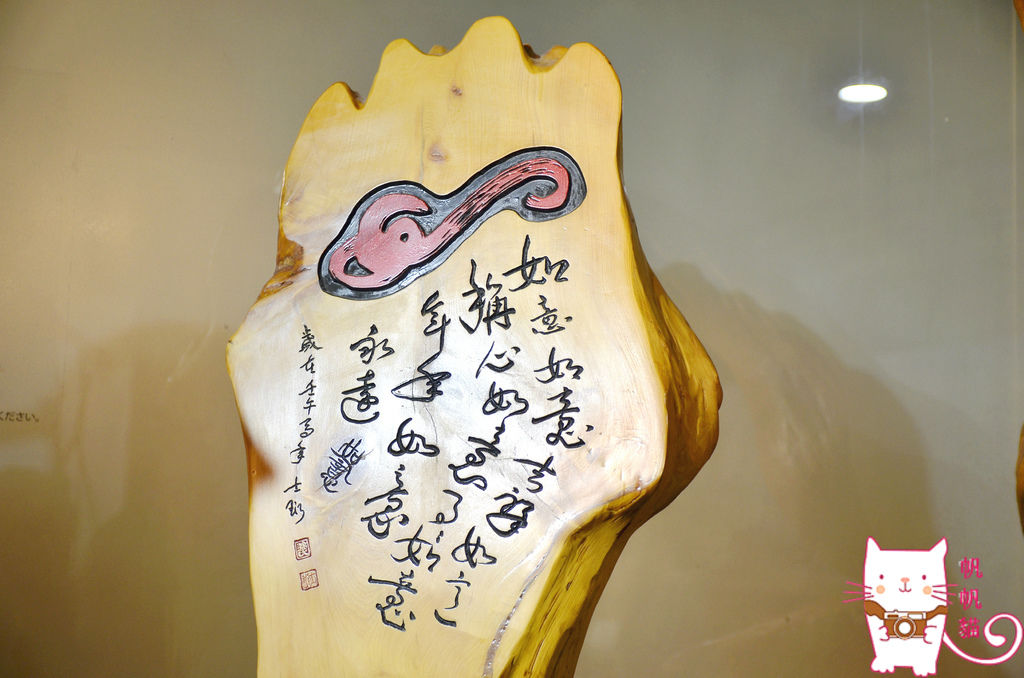 如意如意吉祥如意
稱心如意
如意
年年如意
永遠
歲在壬午馬年
ください。
帆帆貓